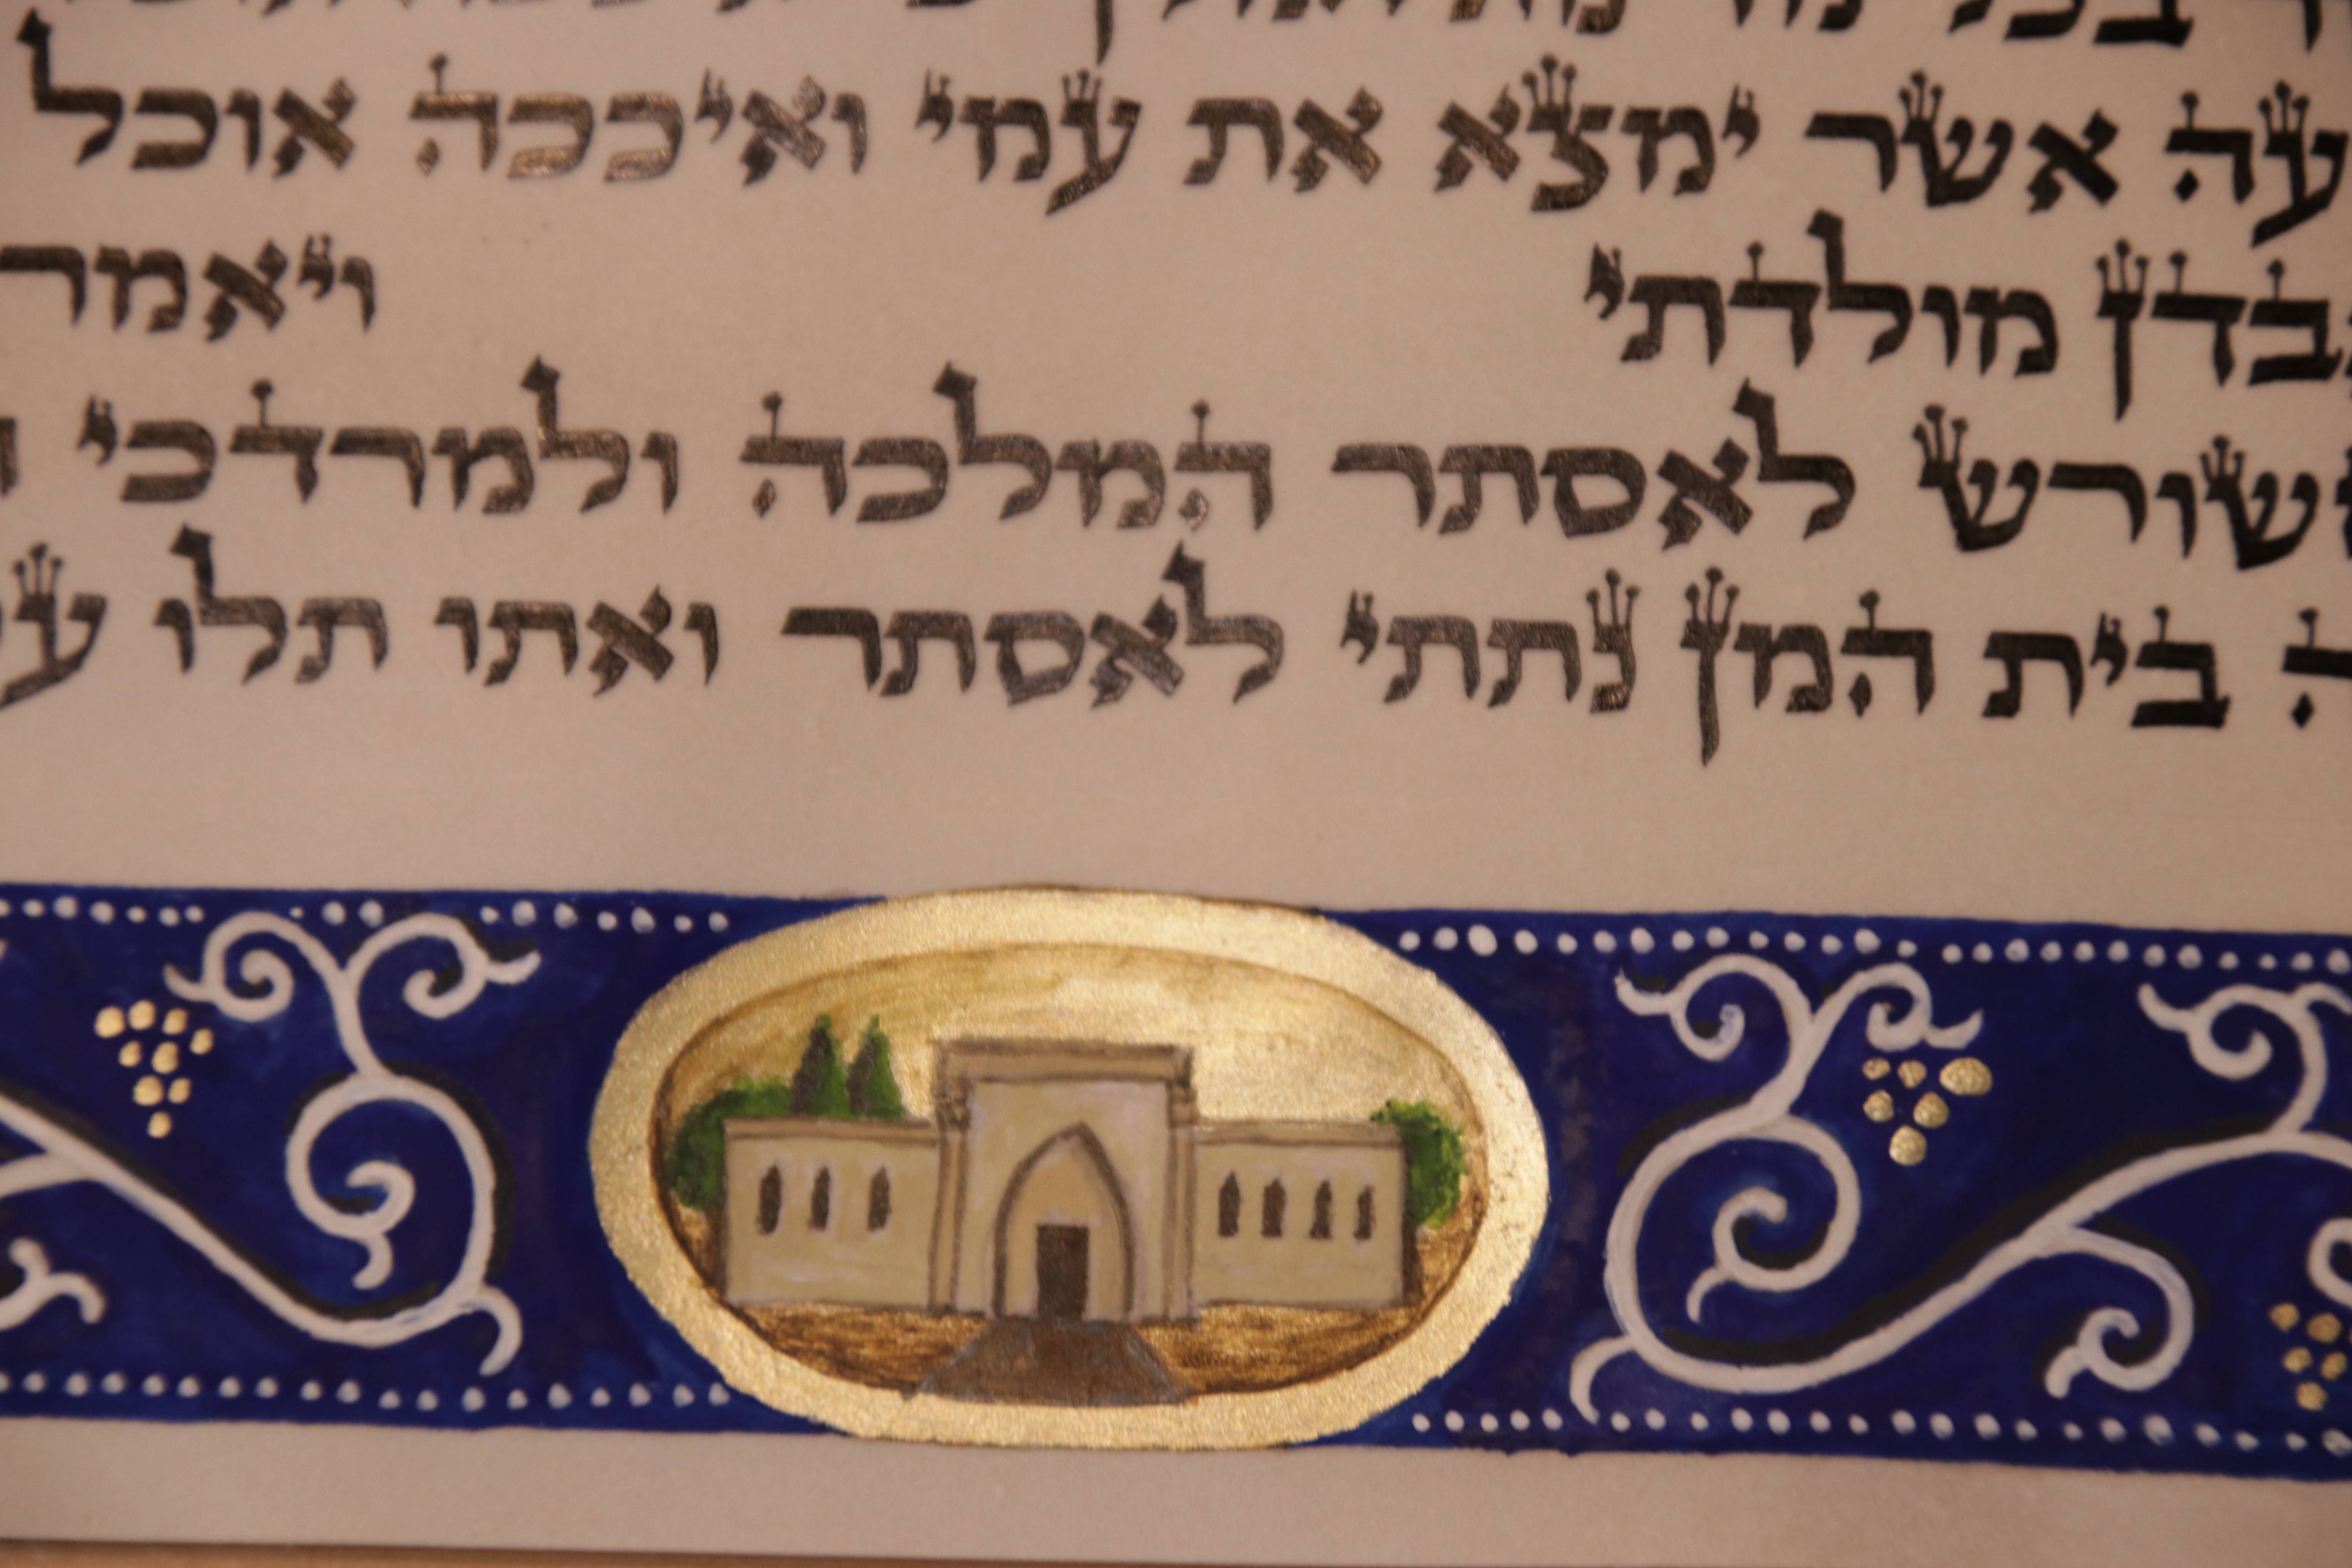 בכל
עה אשר ימצא את עמי ואיככה אוכל
בדן מולדתי ויאמר
שורש לאסתר המלכה ולמרדכי
ה בית המן נתתי לאסתר ואתו תלו ע